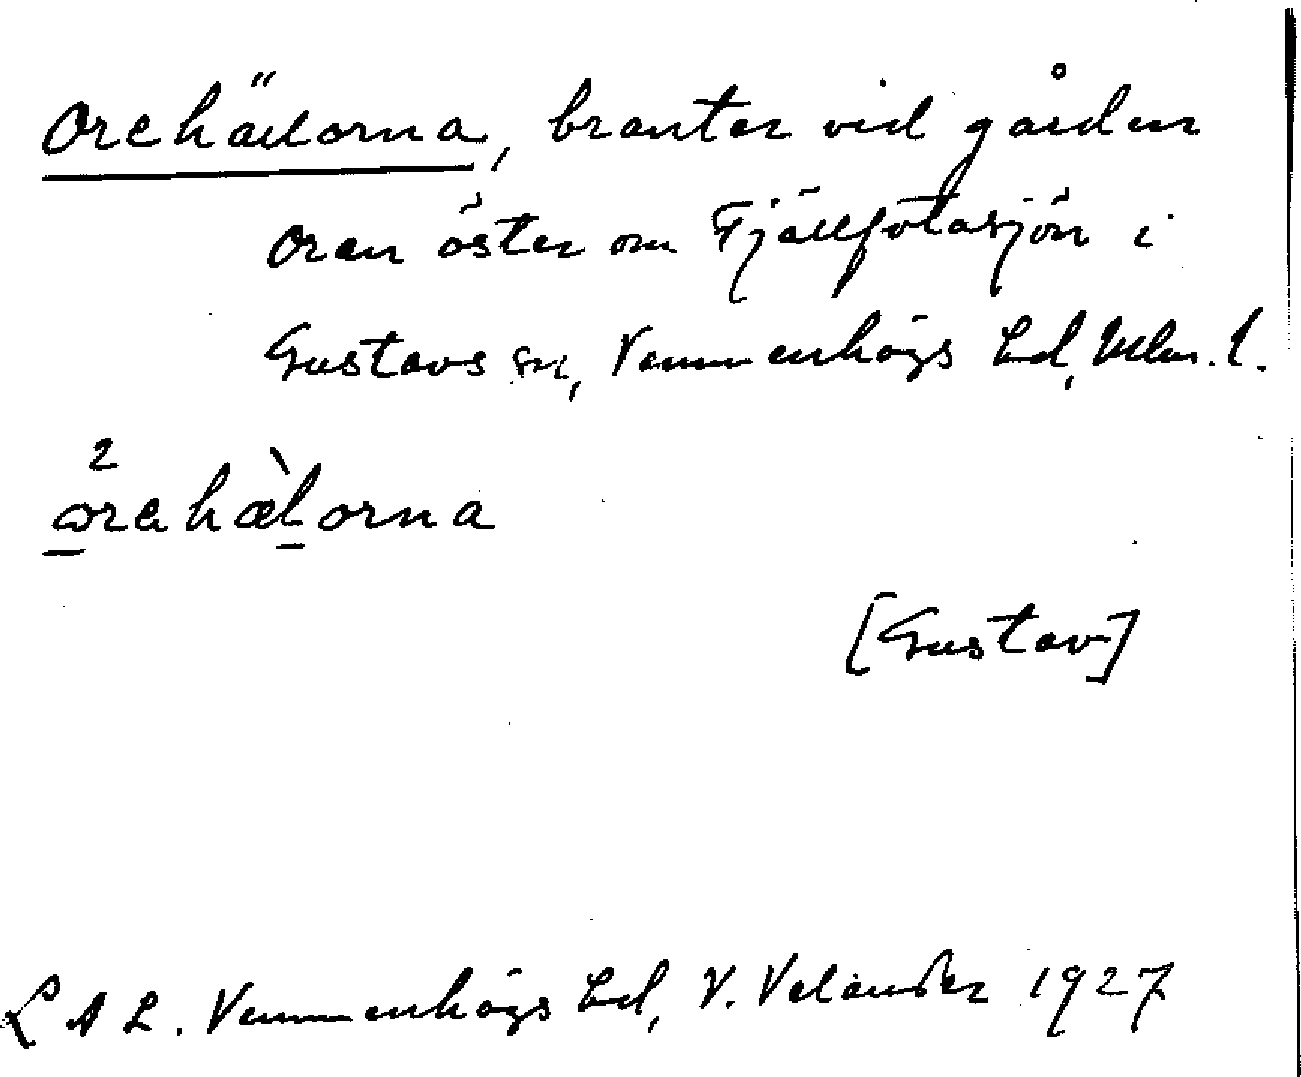 Orehällorna, branter vid gården
Oren öster om Fjällfotasjön i
Gustavs sn, Vemmenhögs hd, Mlm. l.
2
orehæ̀lorna
[Gustav]
L A L. Vemmenhögs hd, V. Velander 1927